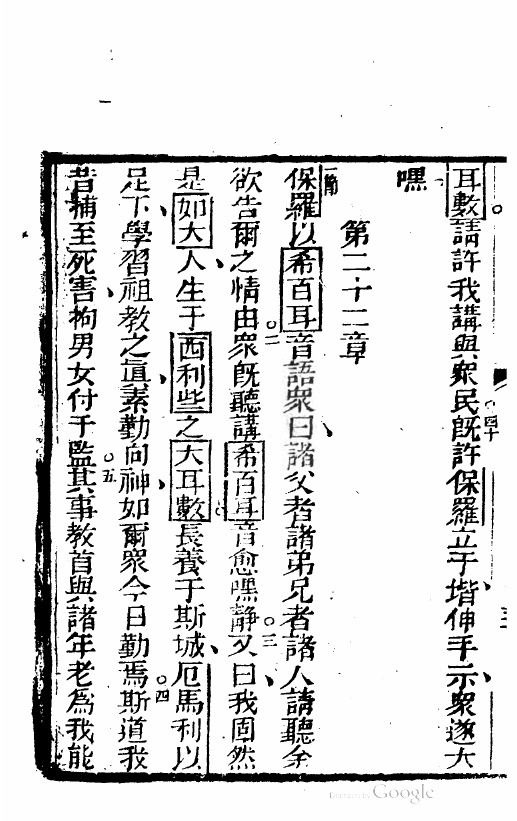 耳數請許我講與眾民。四十既許保羅立于堦伸手示眾遂大
嘿
第二十二章
一節保羅以希百耳音語眾曰諸父者諸弟兄者諸人請聽余
欲告爾之情由。二眾既聽講希百耳音愈嘿靜。三又曰我固然
是如大人生于西利些之大耳數長養于斯城厄馬利以
足下學習祖教之眞素勤向神如爾眾今日勤焉。四斯道我
昔補至死害拘男女付于監。五其事教首與諸年老為我能
Digitized by Google